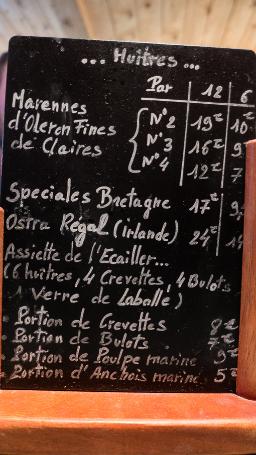 ... Huîtres ...
Par 12 6
Marennes d'Oleron Fines de Claires
N°2 19€ 10€
N°3 16€ 9
N°4 12€ 7
Speciales Bretagne 17€ 9,
Ostra Régal (Irlande) 24€ 14
Assiette de l'Ecailler...
(6 huîtres, 4 Crevettes, 4 Bulots
1 Verre de Laballe)
. Portion de Crevettes 8€
. Portion de Bulots 7€
. Portion de Poulpe mariné 9€
. Portion d'Anchois mariné 5€